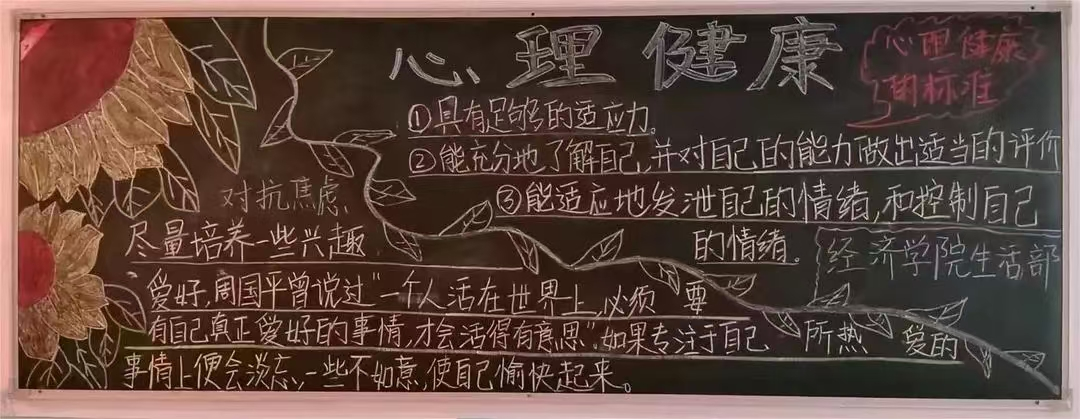 心理健康
心理健康
的标准
①具有足够的适应力。
②能充分地了解自己,并对自己的能力做出适当的评价
③能适应地发泄自己的情绪,和控制自己
的情绪。
经济学院生活部
对抗焦虑
尽量培养一些兴趣
爱好,周国平曾说过"一个人活在世界上,必须 要
有自己真正爱好的事情,才会活得有意思"。如果专注于自己 所热 爱的
事情上便会淡忘,一些不如意,使自己愉快起来。